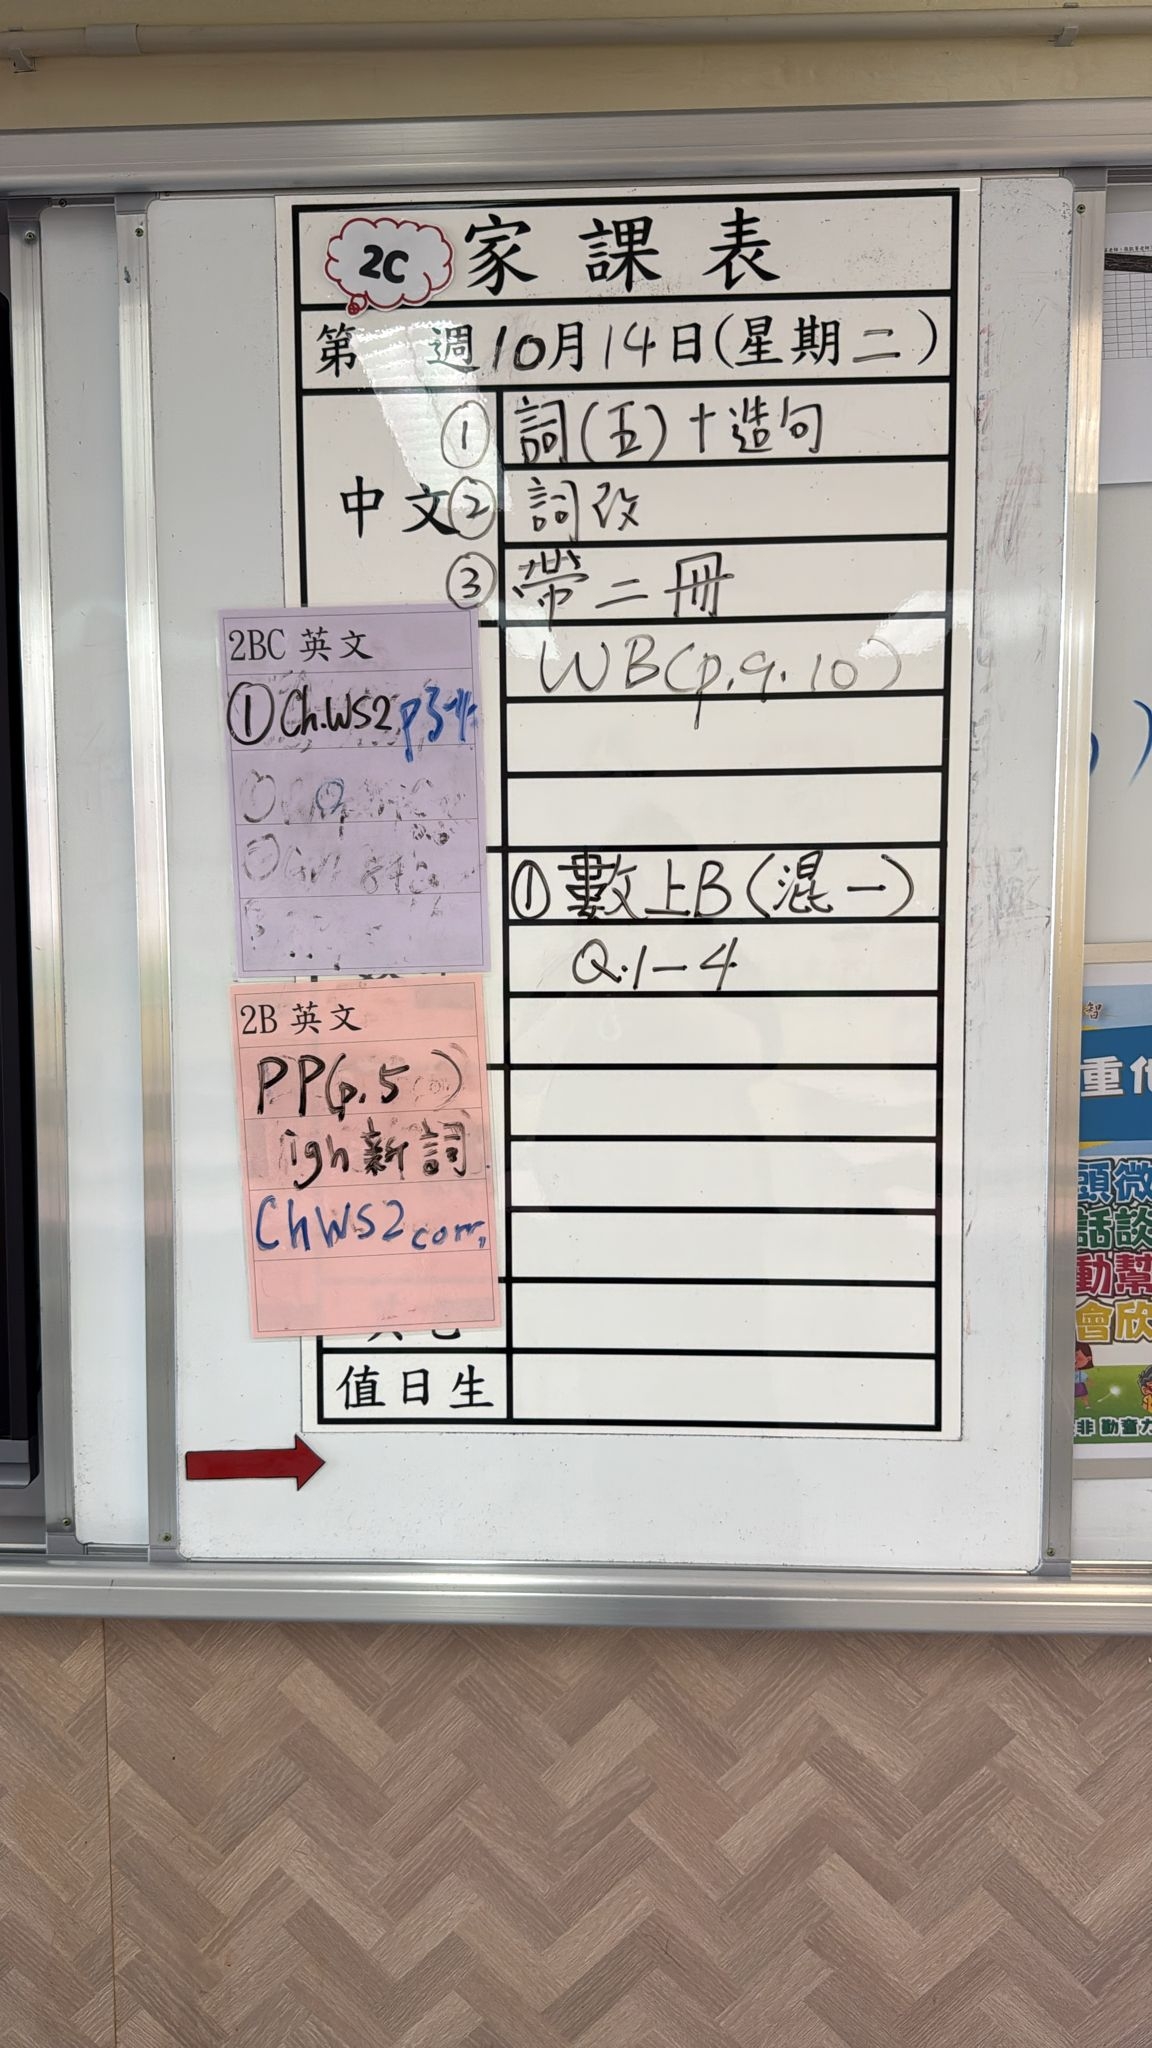 2C 家課表
第 週10月14日(星期二)
中文
① 詞(五)+造句
② 詞改
③ 帶二冊
WB(p.9.10)
2BC 英文
①Ch.WS2
①數上B(混一)
Q.1-4
2B 英文
PP(p.5 )
igh新詞
ChWS2 corr.
值日生
智
重
頭微
話談
動幫
會欣
非 勤奮力